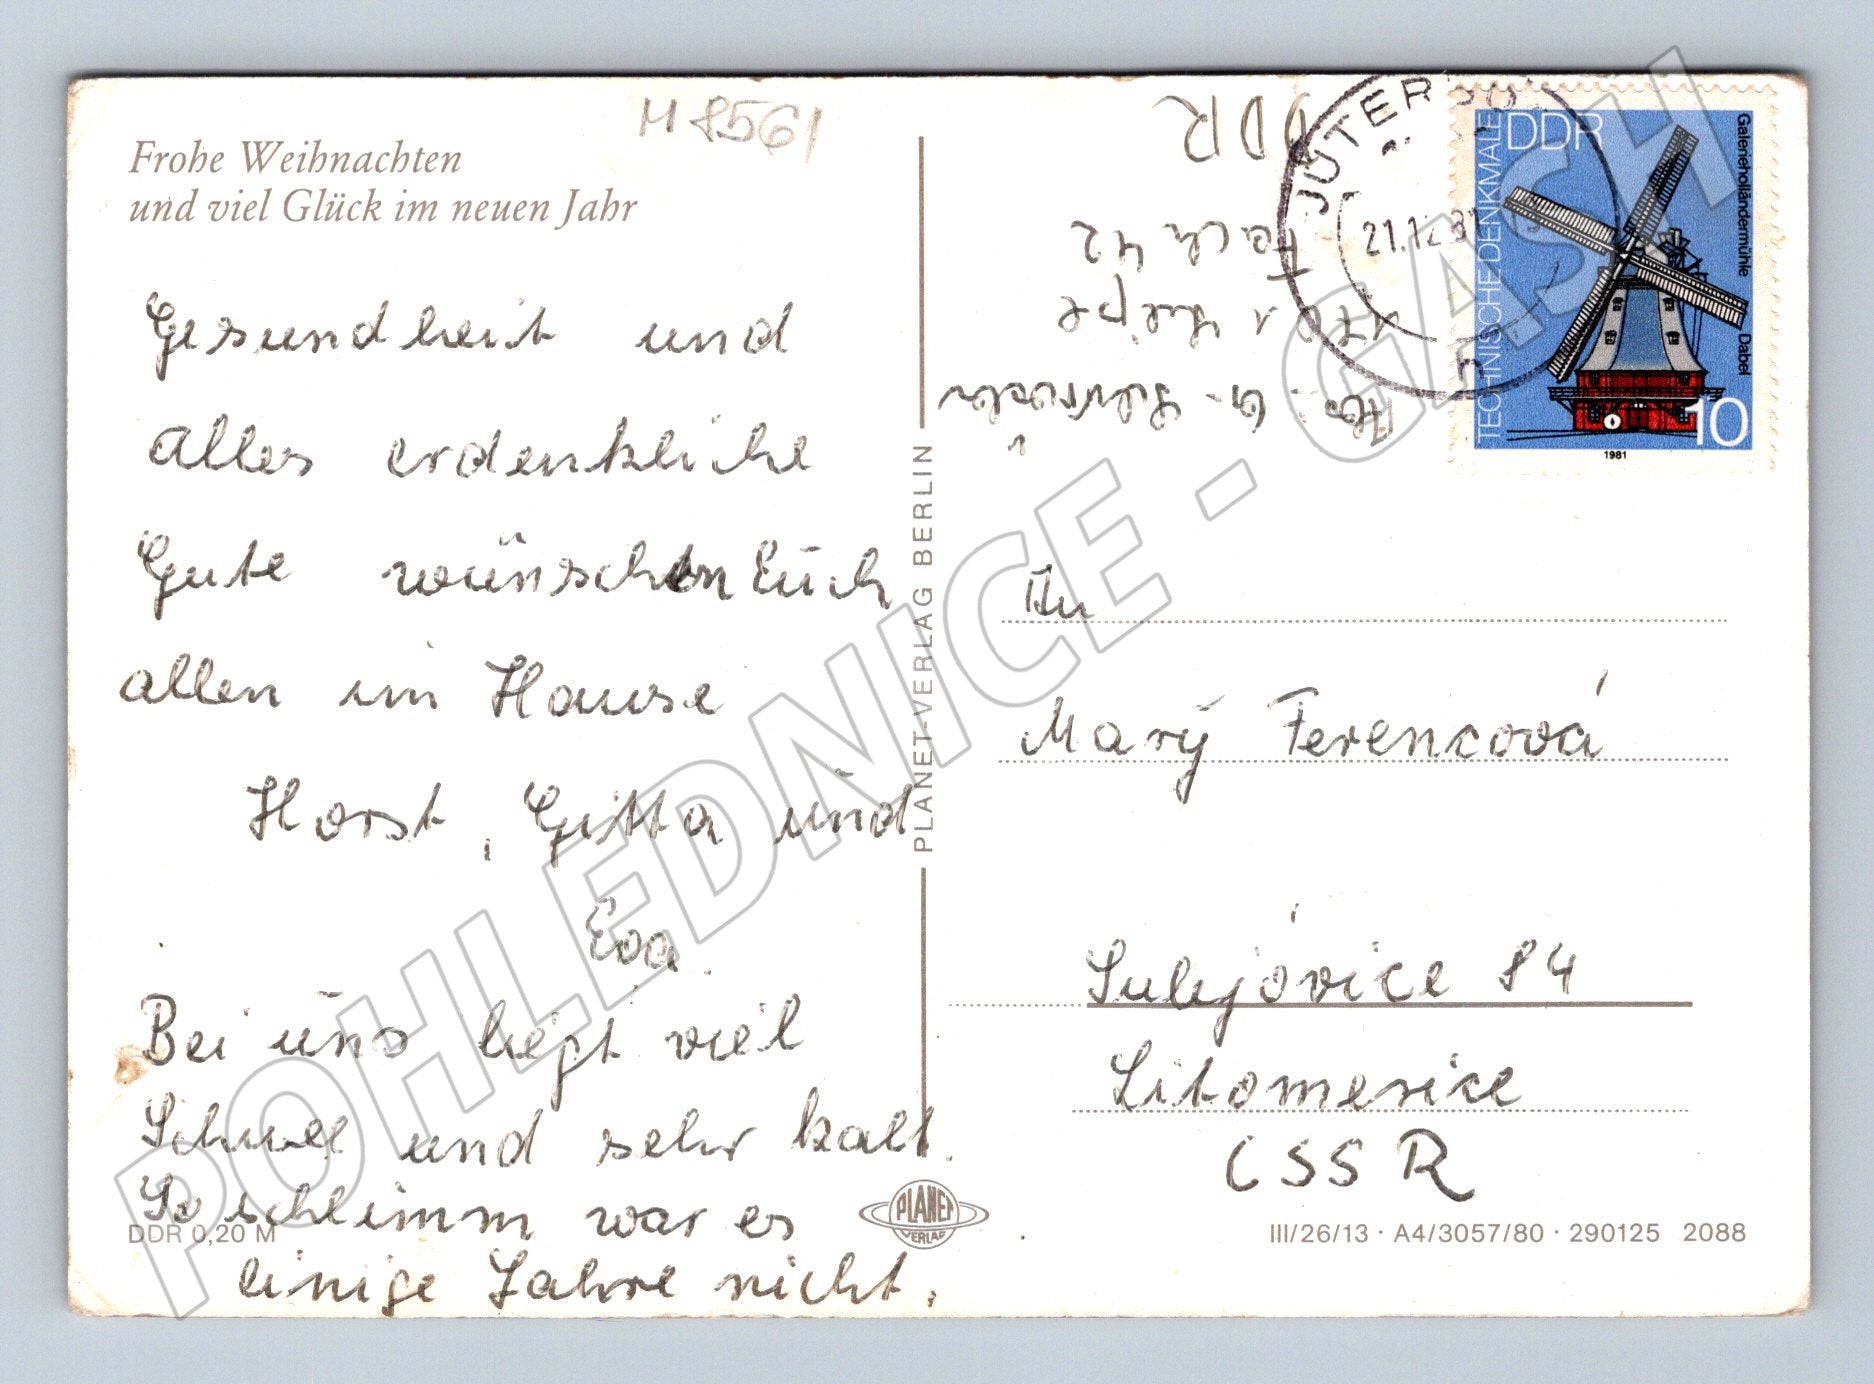 Frohe Weihnachten
und viel Glück im neuen Jahr
M 8561
Gesundheit und
alles erdenkliche
Gute wünschen Euch
allen im Hause
Horst, Gitta und
Eva.
Bei uns liegt viel
Schnee und sehr kalt.
So schlimm war es
einige Jahre nicht.
DDR 0,20 M
PLANET-VERLAG BERLIN
PLANET
VERLAG
DDR
Fach 42
1701
G.
JÜTERBOG
21.12.81
h
DDR
TECHNISCHE DENKMALE
Galerieholländermühle Dabel
10
1981
An
Marý Ferencová
Sulejóvice 84
Litomerice
CSSR
III/26/13 · A4/3057/80 · 290125 2088
POHLEDNICE - GASH